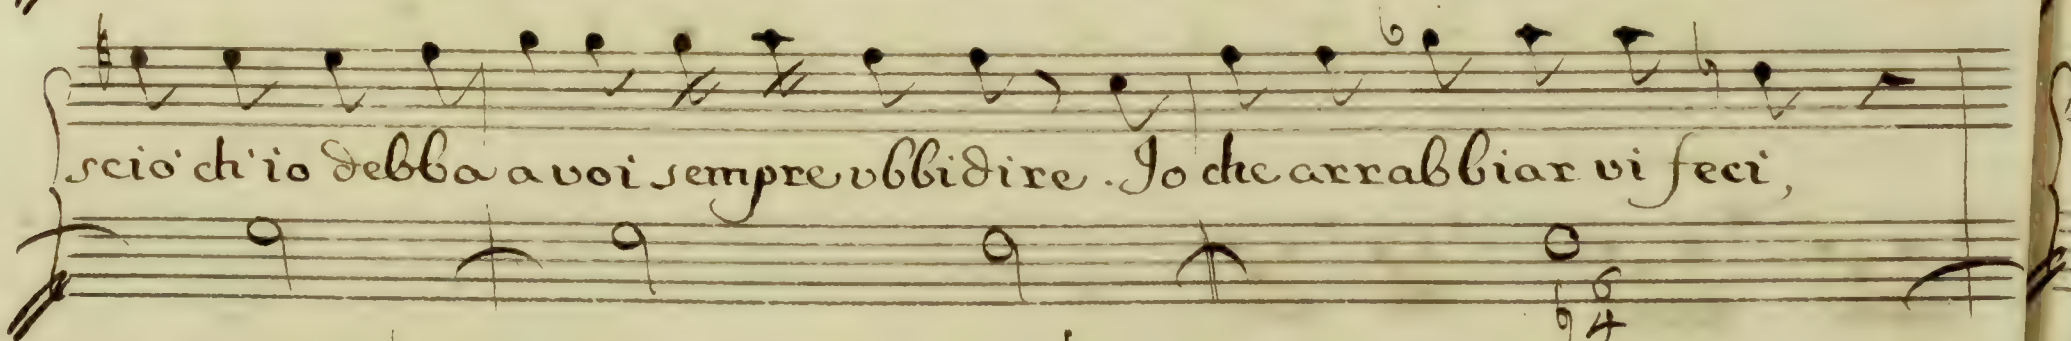 scio' ch'io debba a voi sempre vbbidire. Io che arrabbiar vi feci,
6
4